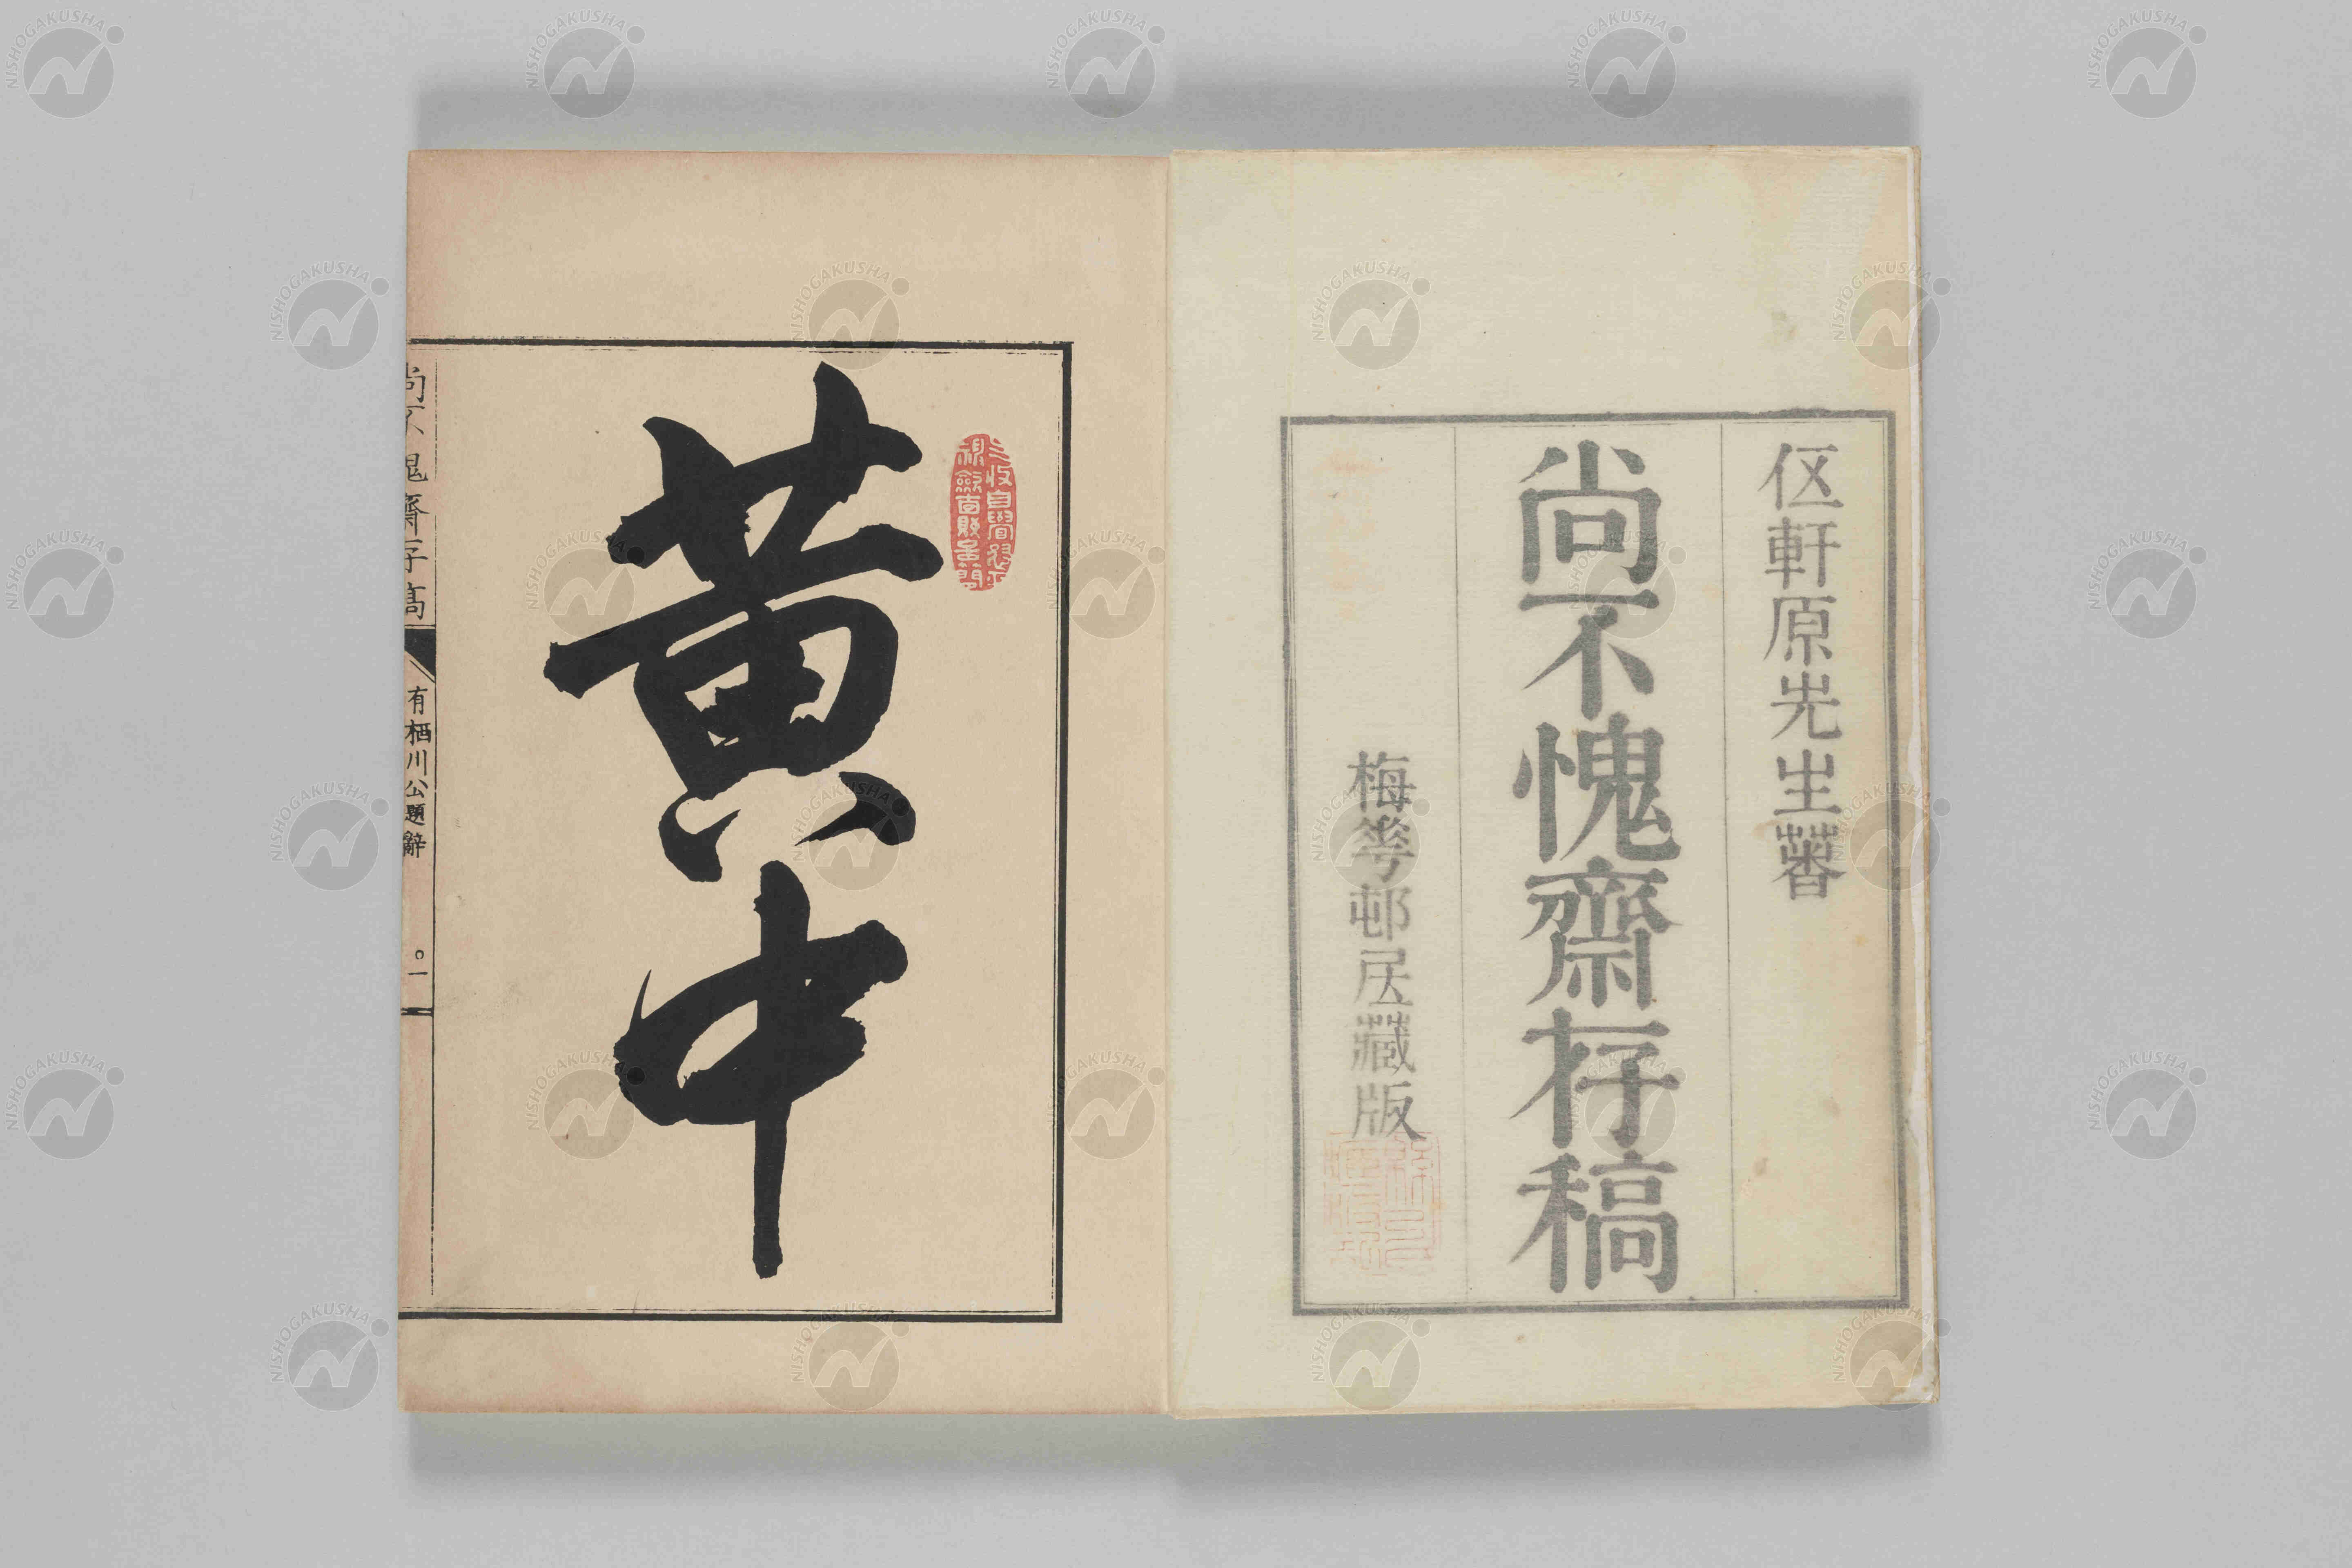 伛軒原先生著
尚不愧齋存稿
梅華邨居藏版
黄中
尚不愧齋存稿
有栖川公題辭
一
NISHOGAKUSHA